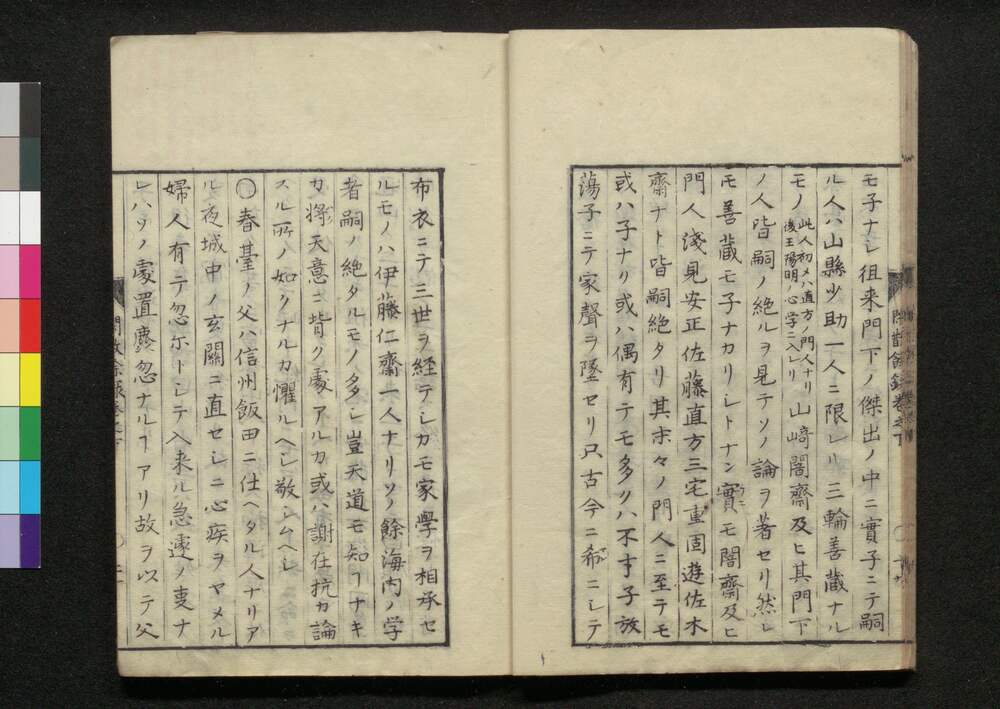 モ子ナシ徂来門下ノ傑出ノ中ニ實子ニテ嗣
ル人ハ山縣少助一人ニ限レリ三輪善蔵ナル
モノ此人初メハ直方ノ門人ナリ後王陽明ノ心学ニ入レリ山﨑闇齋及ヒ其門下
ノ人皆嗣ノ絶ルヲ見テソノ論ヲ著セリ然レ
モ善蔵モ子ナカリシトナン實モ闇齋及ヒ
門人淺見安正佐藤直方三宅重固遊佐木
齋ナト皆嗣絶タリ其末々ノ門人ニ至テモ
或ハ子ナリ或ハ偶有テモ多クハ不才子放
蕩子ニテ家聲ヲ墜セリ只古今ニ希ニシテ
布衣ニテ三世ヲ経テシカモ家學ヲ相承セ
ルモノハ伊藤仁齋一人ナリソノ餘海内ノ学
者嗣ノ絶タルモノ多シ豈天道モ知ヿナキ
カ将天意ニ背ク處アルカ或ハ謝在抗カ論
スル所ノ如クナルカ懼ルヘシ敬シムヘシ
〇春臺ノ父ハ信州飯田ニ仕ヘタル人ナリア
ル夜城中ノ玄關ニ直セシニ心疾ヲヤメル
婦人有テ忽ホトシテ入来ル急遽ノ叓ナ
レハソノ處置麁忽ナルヿアリ故ヲ以テ父